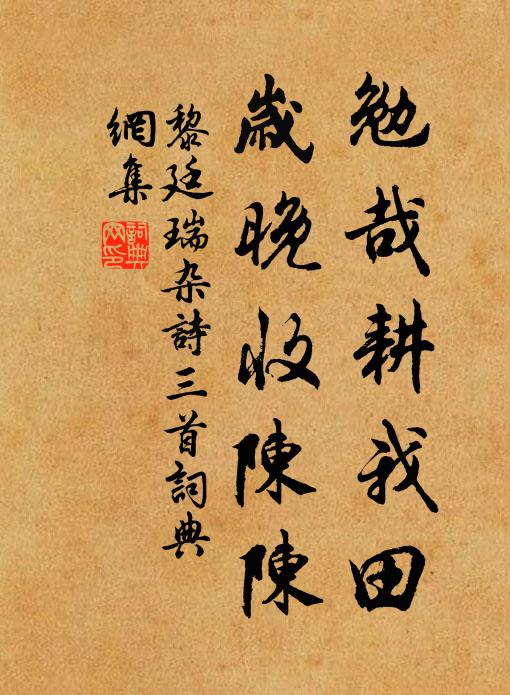 勉哉耕我田
歲晚收陳陳
黎廷瑞杂詩三首詞典
網集
詞典網印